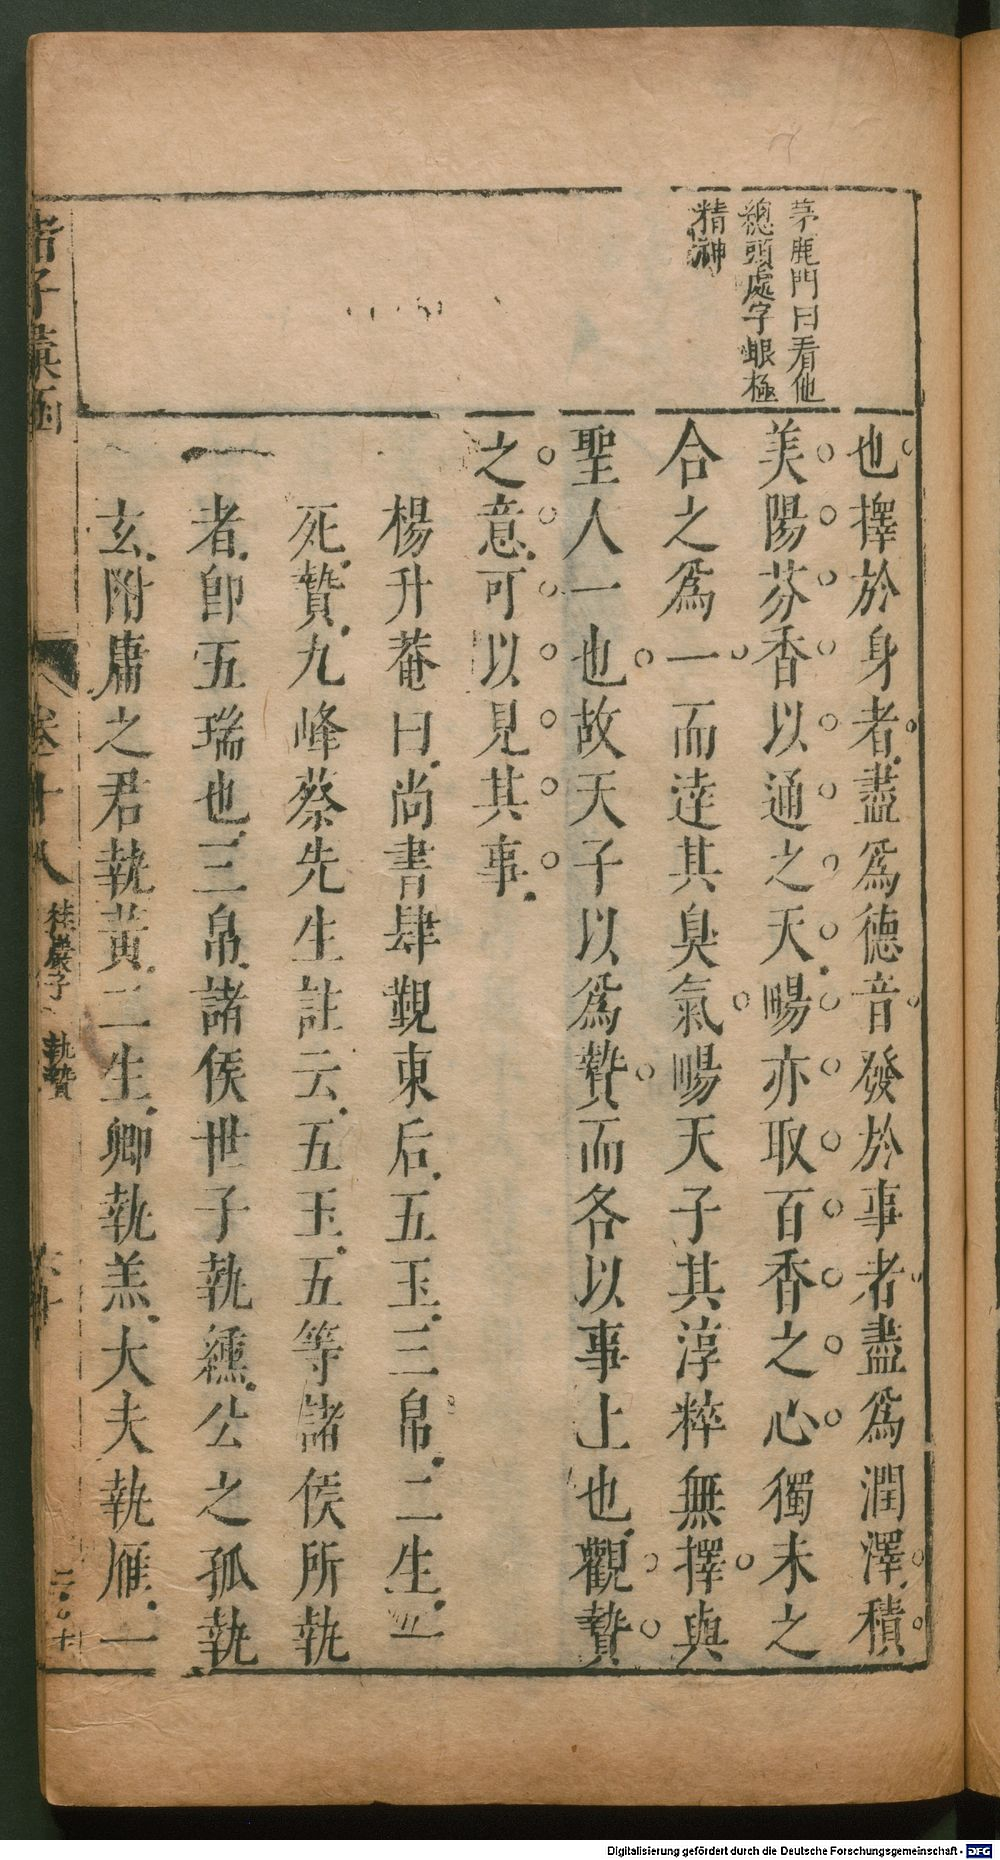 茅鹿門曰看他
總頭處字眼極
精神
也擇於身者盡爲德音發於事者盡爲潤澤積
美陽芬香以通之天暢亦取百香之心獨末之
合之爲一而達其臭氣暢天子其淳粹無擇與
聖人一也故天子以爲贄而各以事上也觀贄
之意可以見其事
楊升菴曰尚書肆覲東后五玉三帛二生一
死贄九峰蔡先生註云五玉五等諸侯所執
者卽五瑞也三帛諸侯世子執纁公之孤執
玄附庸之君執黃二生卿執羔大夫執雁一
諸子彙函
卷十八
桂巖子
執贄
Digitalisierung gefördert durch die Deutsche Forschungsgemeinschaft - DFG